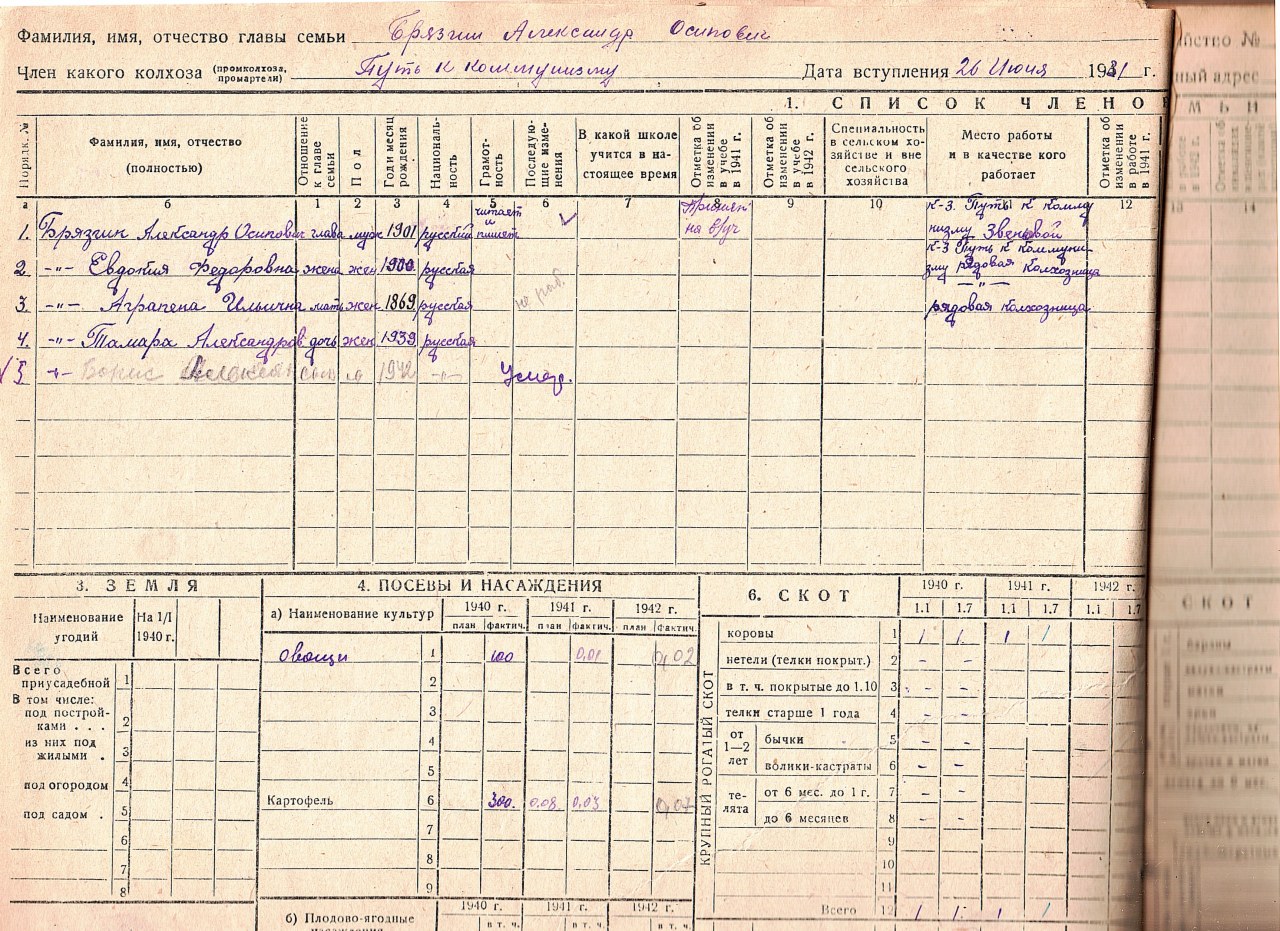 Фамилия, имя, отчество главы семьи Брязгин Александр Осипович
Член какого колхоза (промколхоза, промартели) Путь к коммунизму Дата вступления 26 Июня 1931 г.
1. СПИСОК ЧЛЕНО
Порядк. № Фамилия, имя, отчество (полностью) Отношение к главе семьи Пол Год и месяц рождения Националь-ность Грамот-ность Последую-щие изме-нения В какой школе учится в на-стоящее время Отметка об изменении в учебе в 1941 г. Отметка об изменении в учебе в 1942 г. Специальность в сельском хо-зяйстве и вне сельского хозяйства Место работы и в качестве кого работает Отметка об изменении в работе в 1941 г.
а б 1 2 3 4 5 6 7 8 9 10 11 12
1. Брязгин Александр Осипович глава муж 1901 русский читает и пишет на в/уч к-з. Путь к комму низму Звеновой
2. -"- Евдокия Федоровна жена жен 1900 русская к-з Путь к коммуни-зму рядовая колхозница
3. -"- Аграпена Ильична мать жен 1869 русская не раб. -"- рядовая колхозница
4. -"- Тамара Александров дочь жен 1939 русская
5 -"- Борис сын м 1942 -"- Умер.
3. ЗЕМЛЯ
Наименование угодий На 1/I 1940 г.
Всего приусадебной 1
В том числе:
под построй-ками . . . 2
из них под жилыми . 3
под огородом 4
под садом . 5
6
7
8
4. ПОСЕВЫ И НАСАЖДЕНИЯ
а) Наименование культур 1940 г. 1941 г. 1942 г.
план фактич. план фактич. план фактич.
Овощи 1 100 0,01 0,02
2
3
4
5
Картофель 6 300. 0,08 0,03 0,07
7
8
9
б) Плодово-ягодные насаждения 1940 г. 1941 г. 1942 г.
в т. ч. в т. ч. в т. ч.
6. СКОТ 1940 г. 1941 г. 1942 г.
1.1 1.7 1.1 1.7 1.1 1.7
КРУПНЫЙ РОГАТЫЙ СКОТ
коровы 1 1 1. 1 1
нетели (телки покрыт.) 2 - -
в т. ч. покрытые до 1.10 3 - -
телки старше 1 года 4 - -
от 1—2 лет бычки 5 - -
волики-кастраты 6 - -
те-лята от 6 мес. до 1 г. 7 - -
до 6 месяцев 8 - -
9
10
11
Всего 12 1 1. 1 1
йство №
ный адрес
МЬИ
13 14
СКОТ